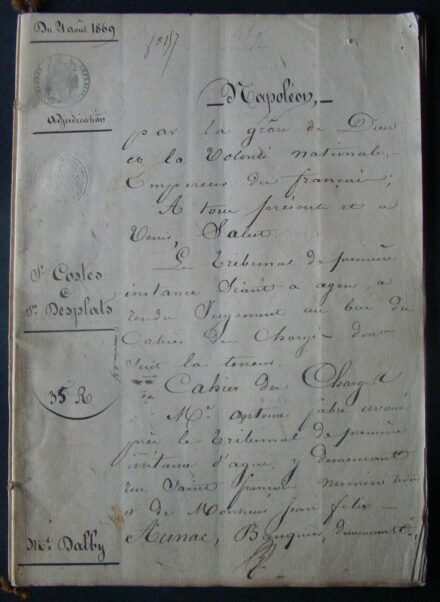 Du 21 août 1869
Adjudication
Sr Costes
&
Sr Desplats
35 R
Me Dalby
Napoléon,
par la grâce de Dieu
et la Volonté nationale,
Empereur des français;
A tous présents et à
Venir, Salut.
Le Tribunal de première
instance séant à agen, a
rendu Jugement au bas du
Cahier des Charges dont
suit la teneur
Cahier des Charges
Me antoine fabre avoué
près le Tribunal de première
instance d'agen, y demeurant
rue Saint françois numéro
et de Monsieur Jean felix
Aunac, Banquier, demeurant